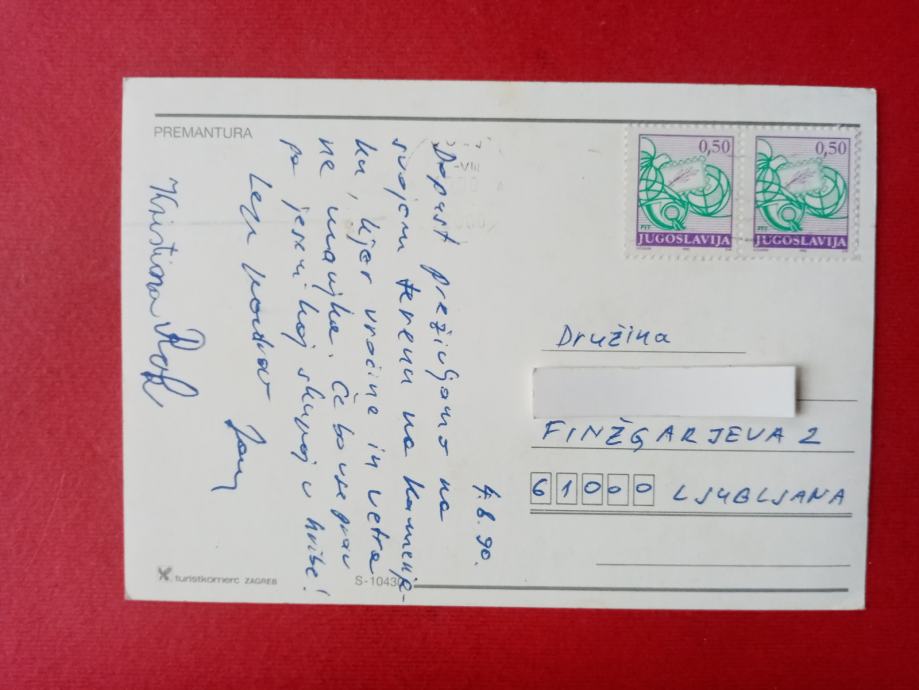 PREMANTURA
4.8.90.
Dopust preživljamo na
svojem terenu na kamenja-
ku, kjer vročine in vetra
ne manjka. Če bo vse prav
pa jeseni kaj skupaj v hribe!
Lep pozdrav
Kristina Rok
0,50
PTT
JUGOSLAVIJA
0,50
PTT
JUGOSLAVIJA
-VIII
Družina
FINŽGARJEVA 2
61000 LJUBLJANA
turistkomerc ZAGREB
S-10430